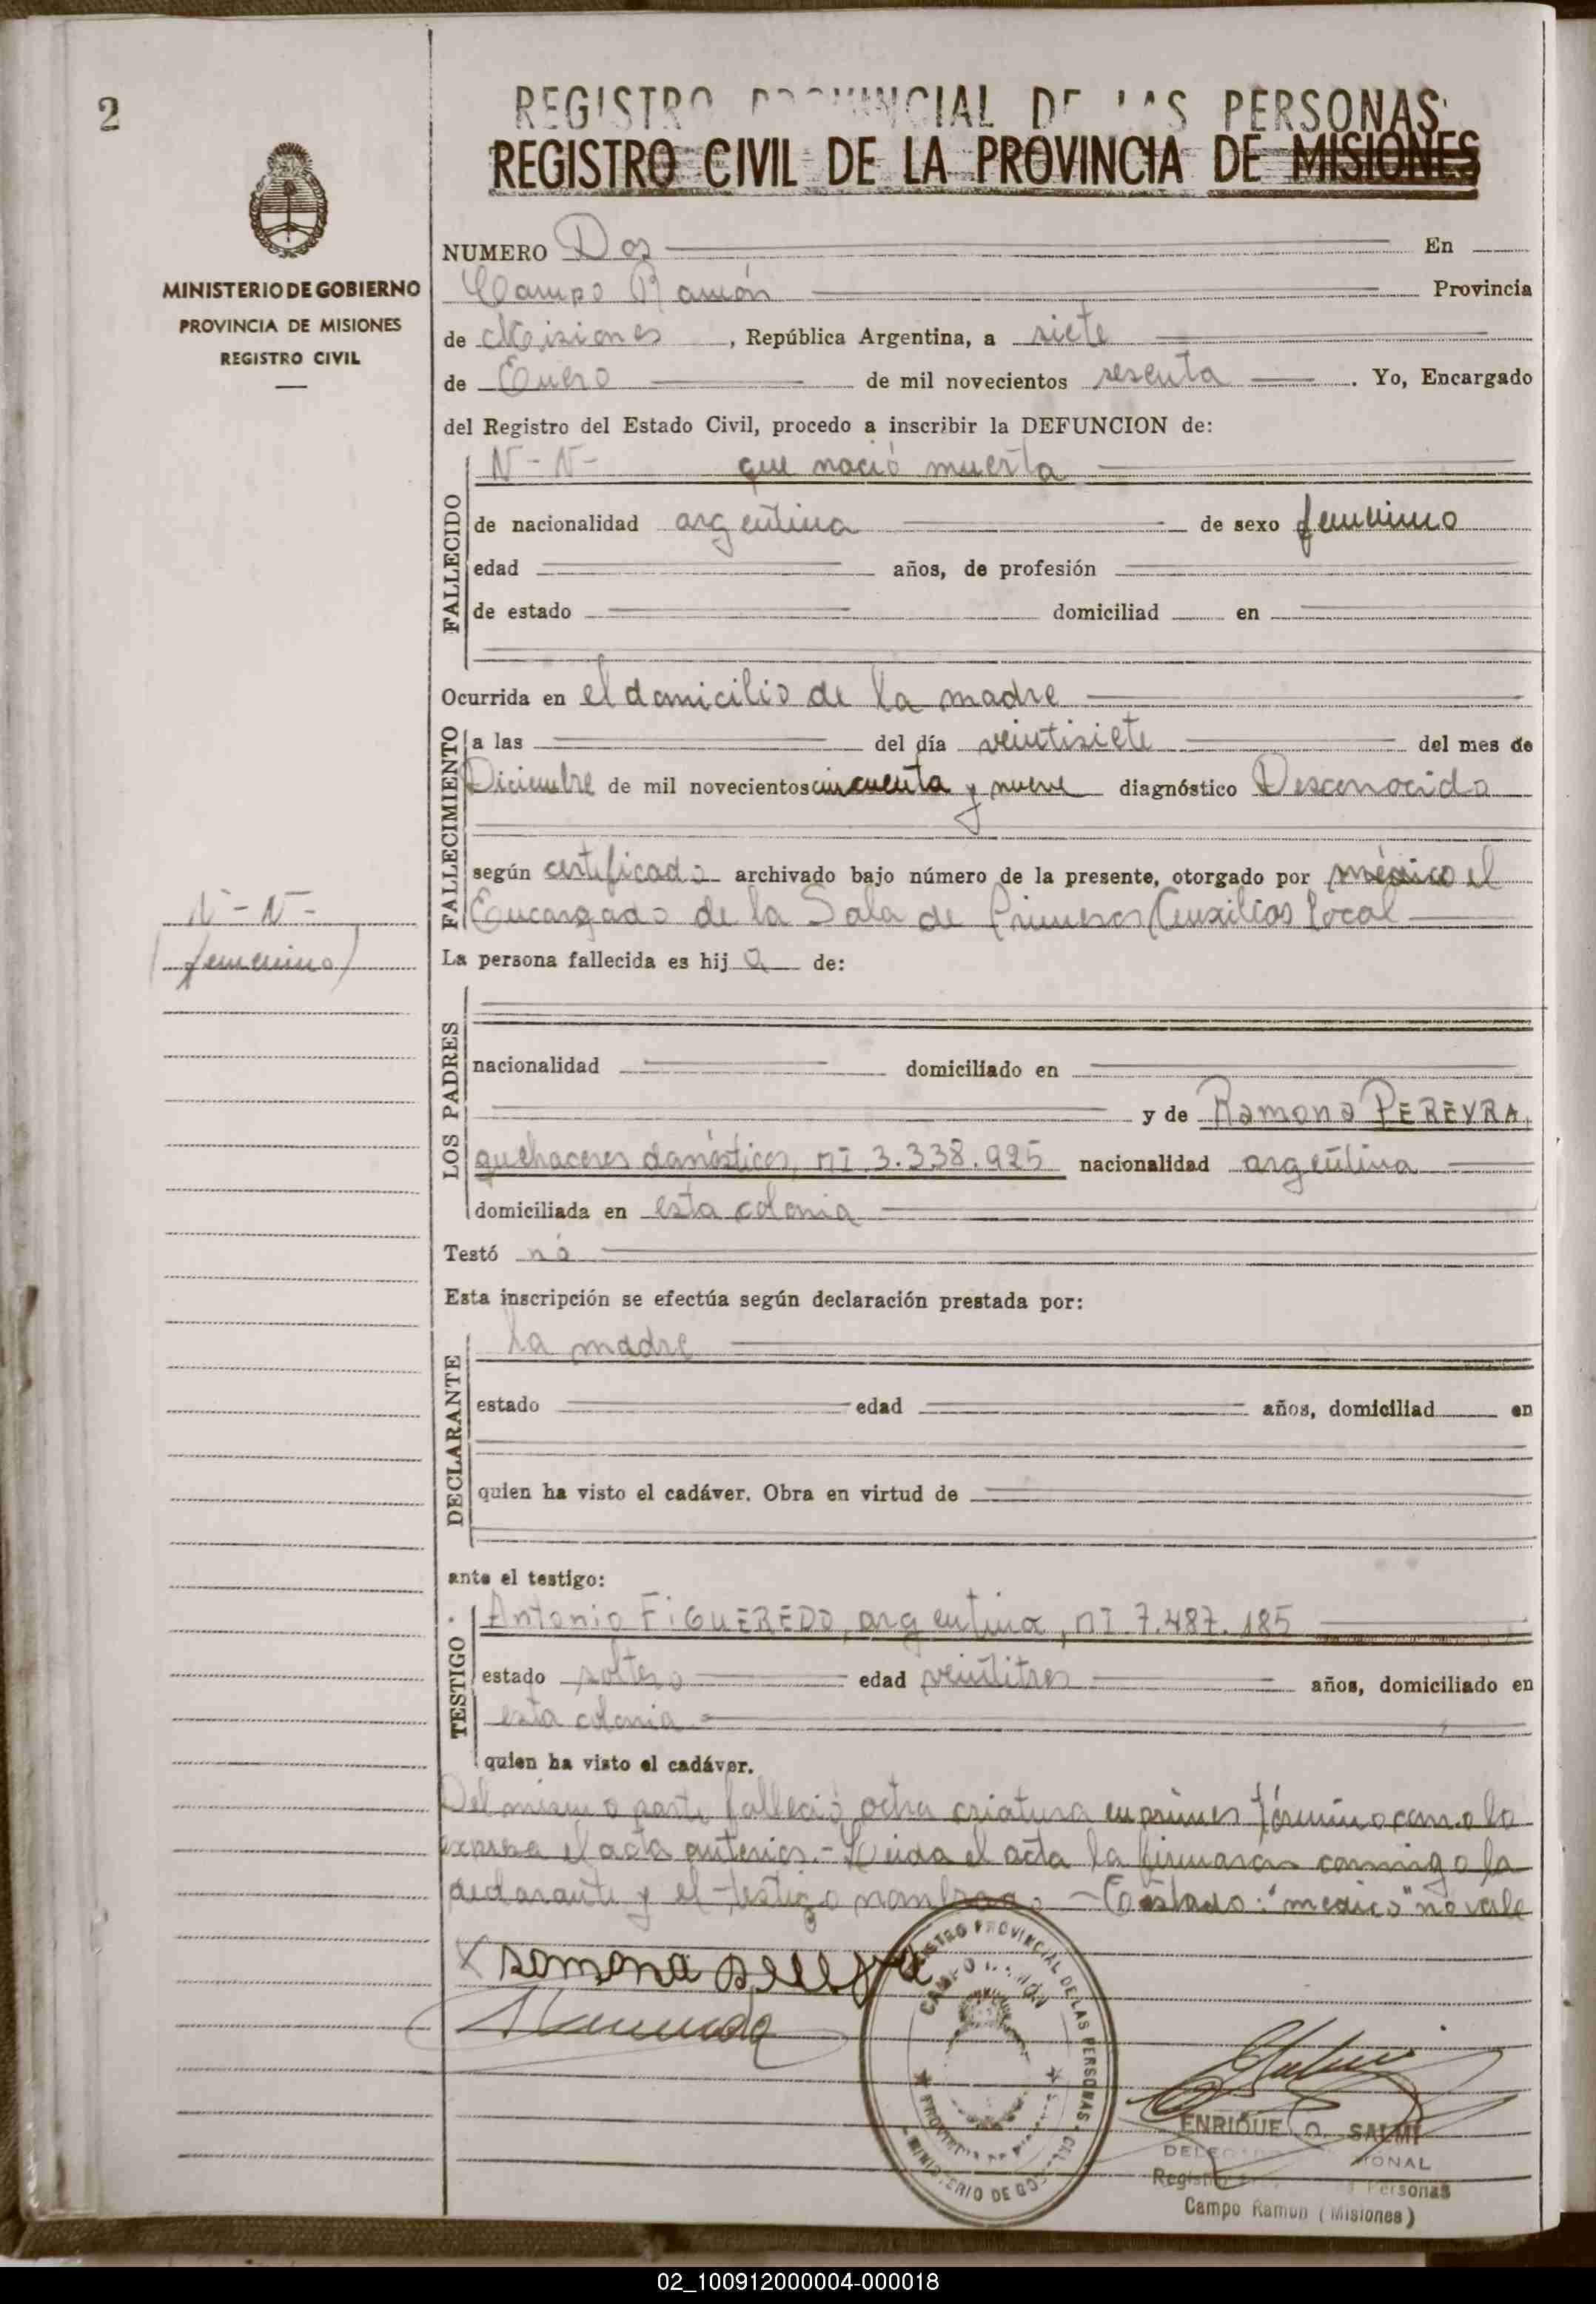 2
REGISTRO PROVINCIAL DE LAS PERSONAS
REGISTRO CIVIL DE LA PROVINCIA DE MISIONES
MINISTERIO DE GOBIERNO
PROVINCIA DE MISIONES
REGISTRO CIVIL
NUMERO Dos En
Campo Ramón Provincia
de Misiones, República Argentina, a siete
de Enero de mil novecientos sesenta. Yo, Encargado
del Registro del Estado Civil, procedo a inscribir la DEFUNCION de:
FALLECIDO
N-N- que nació muerta
de nacionalidad argentina de sexo femenino
edad años, de profesión
de estado domiciliad en
Ocurrida en el domicilio de la madre
FALLECIMIENTO
a las del día veintisiete del mes de
Diciembre de mil novecientos cincuenta y nueve diagnóstico Desconocido
según certificado archivado bajo número de la presente, otorgado por médico el
Encargado de la Sala de Primeros Auxilios local
N-N-
(femenino)
La persona fallecida es hij a de:
LOS PADRES
nacionalidad domiciliado en
y de Ramona PEREYRA,
quehaceres domésticos, MI 3.338.925 nacionalidad argentina
domiciliada en esta colonia
Testó nó
Esta inscripción se efectúa según declaración prestada por:
DECLARANTE
La madre
estado edad años, domiciliad en
quien ha visto el cadáver. Obra en virtud de
ante el testigo:
TESTIGO
Antonio FIGUEREDO, argentino, MI 7.487.185
estado soltero edad veintitres años, domiciliado en
esta colonia
quien ha visto el cadáver.
Del mismo parto falleció otra criatura en primer término como lo
expresa el acta anterior.- Leída el acta la firmaron conmigo la
declarante y el testigo nombrado - Testado: "médico" no vale
x Ramona
REGISTRO PROVINCIAL DE LAS PERSONAS
CAMPO RAMON
PROVINCIA DE MISIONES
MINISTERIO DE GOBIERNO
ENRIQUE O. SALMI
Personas
Campo Ramon (Misiones)
02_100912000004-000018